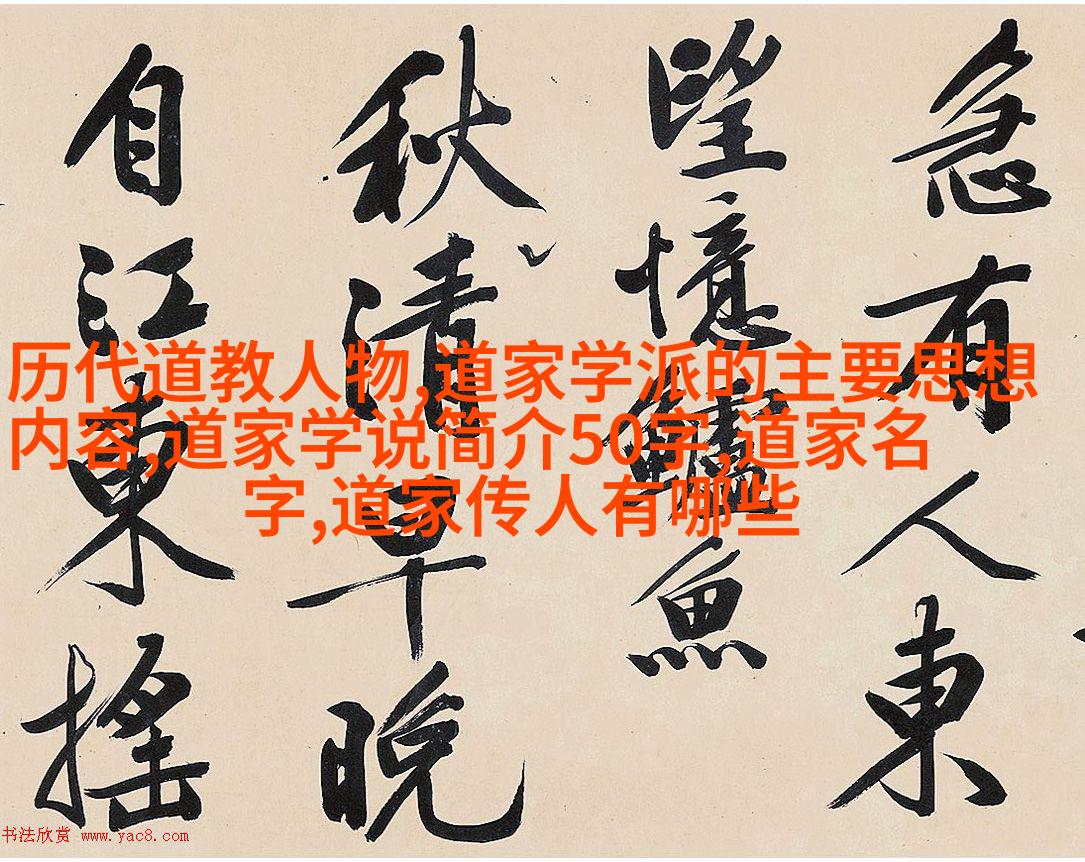 急有人東
望憶鱸魚
秋清早晚
自江東搖
历代道教人物,道家学派的主要思想
内容,道家学说简介50字,道家名
字,道家传人有哪些
书法欣赏 www.yac8.com